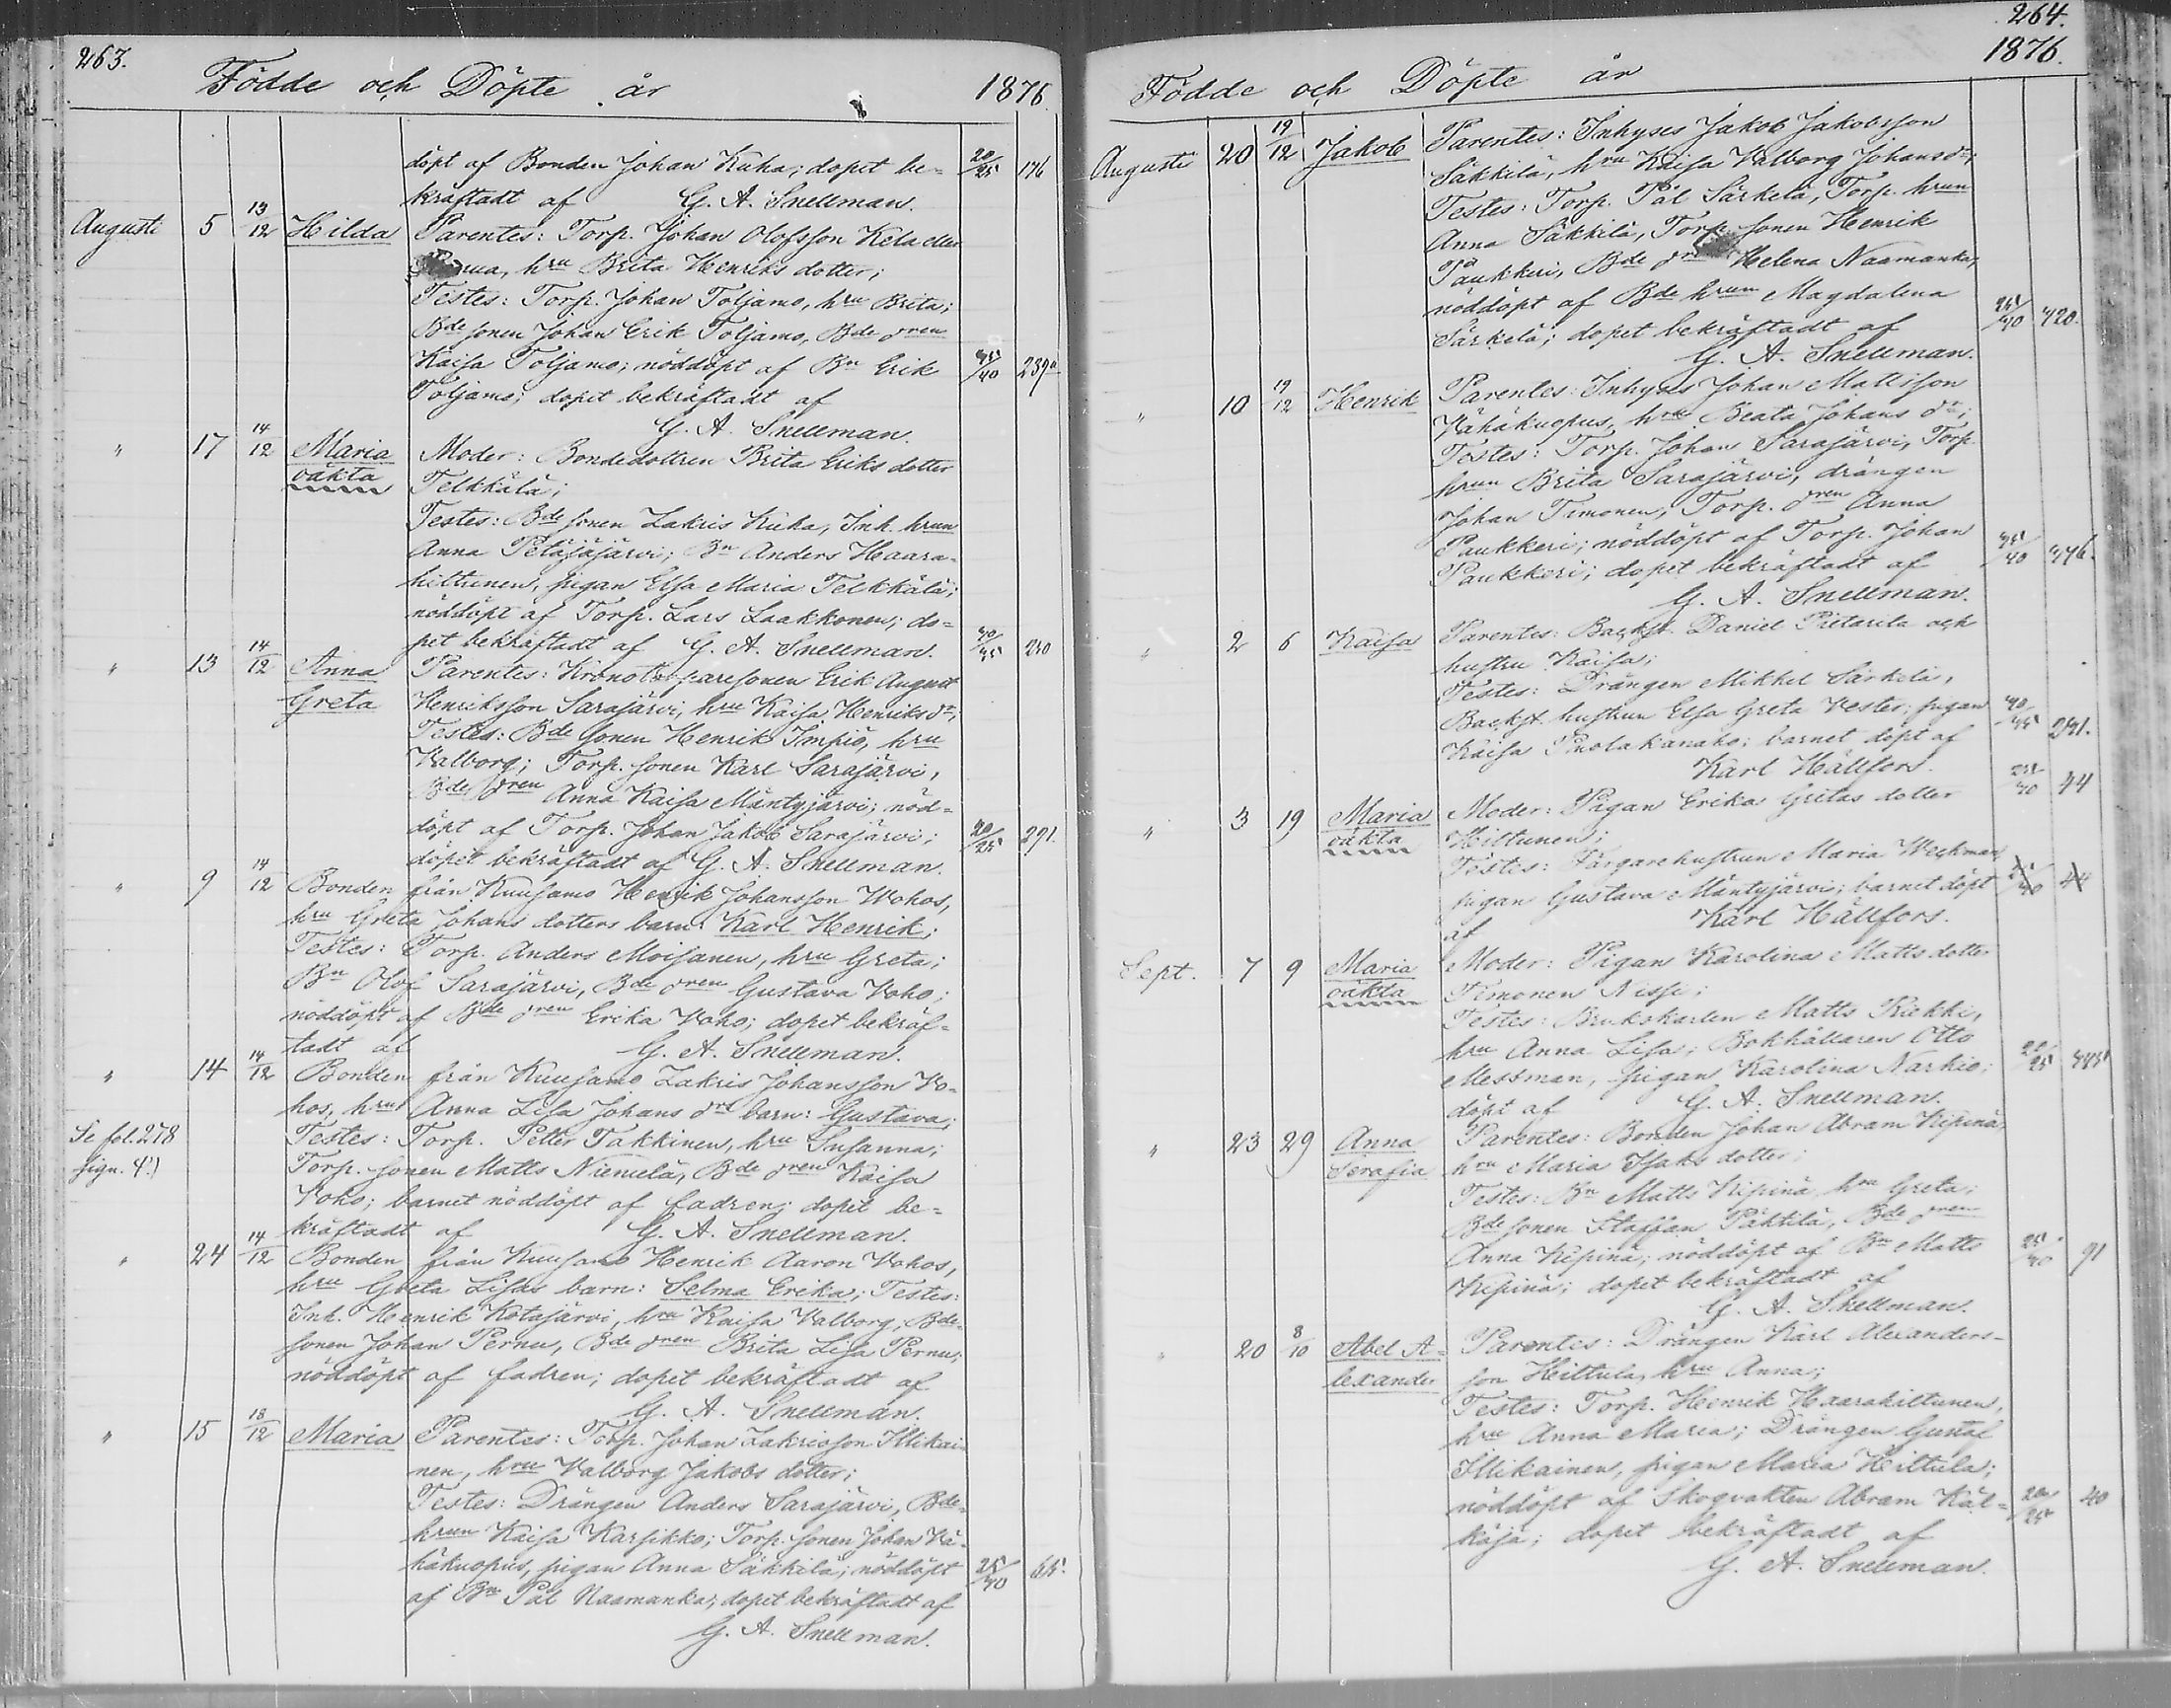 263.
Födde och Döpte år 1876.
döpt af Bonden Johan Kuha; dopet be= 20/25 176
kräftadt af G. A. Snellman.
Augusti 5 13/12 Hilda Parentes: Torp. Johan Olofsson Kela eller
hru Brita Henriks dotter;
Testes: Torp. Johan Toljamo, hru Brita;
Bde sonen Johan Erik Toljamo, Bde dren
Kaisa Toljamo; nöddöpt af Bn Erik 35/40 239
Toljamo; dopet bekräftadt af
G. A. Snellman.
" 17 14/12 Maria Moder: Bondedottren Brita Eriks dotter
oäkta Telkkälä;
Testes: Bde sonen Zakris Kuha, Inh. hrun
Anna Petäjäjärvi; Bn Anders Haara-
hiltunen, pigan Elsa Maria Telkkälä;
nöddöpt af Torp. Lars Laakkonen; do=
pet bekräftadt af G. A. Snellman. 30/35 250
" 13 14/12 Anna Parentes: Kronotorparesonen Erik August
Greta Henriksson Sarajärvi, hru Kaisa Henriks dr;
Testes: Bde sonen Henrik Impiö, hru
Valborg; Torp. sonen Karl Sarajärvi,
Bde dren Anna Kaisa Mäntyjärvi; nöd=
döpt af Torp. Johan Jakob Sarajärvi; 20/25 291.
dopet bekräftadt af G. A. Snellman.
" 9 14/12 Bonden från Kuusamo Henrik Johansson Wohos,
hru Greta Johans dotters barn: Karl Henrik;
Testes: Torp. Anders Moisanen, hru Greta;
Bn Olof Sarajärvi, Bde dren Gustava Voho;
nöddöpt af Bde dren Erika Voho; dopet bekräf=
tadt af G. A. Snellman.
" 14 14/12 Bonden från Kuusamo Zakris Johansson Vo=
hos, hru Anna Lisa Johans drs barn: Gustava;
Se fol. 278 Testes: Torp. Petter Takkinen, hru Susanna;
sign. 4.) Torp. sonen Matts Niemelä, Bde dren Kaisa
Voho; barnet nöddöpt af fadren; dopet be=
kräftadt af G. A. Snellman.
" 24 14/12 Bonden från Kuusamo Henrik Aaron Vohos,
hru Greta Lisas barn: Selma Erika; Testes:
Inh. Henrik Kotajärvi, hru Kaisa Valborg; Bde-
sonen Johan Pernu, Bde dren Brita Lisa Pernu;
nöddöpt af fadren; dopet bekräftadt af
G. A. Snellman.
" 15 18/12 Maria Parentes: Torp. Johan Zakrisson Illikai-
nen, hru Valborg Jakobs dotter;
Testes: Drängen Anders Sarajärvi, Bde-
hrun Kaisa Karsikko; Torp. sonen Johan Vä-
häkuopus, pigan Anna Säkkilä; nöddöpt 25/40 65.
af Bn Pål Naamanka; dopet bekräftadt af
G. A. Snellman.
264.
Födde och Döpte år 1876.
Augusti 20 19/12 Jakob Parentes: Inhyses Jakob Jakobsson
Säkkilä, hru Kaisa Valborg Johans dr;
Testes: Torp. Pål Särkelä, Torp. hrun
Anna Säkkilä, Torp. sonen Henrik
Paukkeri, Bde dren Helena Naamanka;
nöddöpt af Bde hrun Magdalena
Särkelä; dopet bekräftadt af 25/40 420.
G. A. Snellman.
" 10 19/12 Henrik Parentes: Inhyses Johan Mattsson
Vähäkuopus, hru Beata Johans dr;
Testes: Torp. Johan Sarajärvi, Torp.
hrun Brita Sarajärvi, drängen
Johan Timonen, Torp. dren Anna
Paukkeri; nöddöpt af Torp. Johan
Paukkeri; dopet bekräftadt af 35/40 446.
G. A. Snellman.
" 2 6 Kaisa Parentes: Backst. Daniel Pietarila och
hustru Kaisa;
Testes: Drängen Mikkel Särkelä,
Backst. hustrun Elsa Greta Vester; pigan
Kaisa Puolakanaho; barnet döpt af 291.
Karl Hällfors.
" 3 19 Maria Moder: Pigan Erika Gretas dotter 44
oäkta Hiltunen;
Testes: Färgarehustrun Maria Weckman,
pigan Gustava Mäntyjärvi; barnet döpt 44
af Karl Hällfors.
Sept. 7 9 Maria Moder: Pigan Karolina Matts dotter
oäkta Timonen Nissi;
Testes: Brukskarlen Matts Kiekki,
hru Anna Lisa; Bokhållaren Otto
Messman, pigan Karolina Narkio;
döpt af G. A. Snellman.
" 23 29 Anna Parentes: Bonden Johan Abram Kipinä,
Serafia hru Maria Isaks dotter;
Testes: Bn Matts Kipinä, hru Greta;
Bde sonen Staffan Pähtilä, Bde dren
Anna Kipinä; nöddöpt af Bn Matts 25/40 91
Kipinä; dopet bekräftadt af
G. A. Snellman.
" 20 8/10 Abel A= Parentes: Drängen Karl Alexanders-
lexander son Hiltula, hru Anna;
Testes: Torp. Henrik Haarahiltunen,
hru Anna Maria; Drängen Gustaf
Illikainen, pigan Maria Hiltula;
nöddöpt af Skogvakten Abram Käl= 20/25 40
käjä; dopet bekräftadt af
G. A. Snellman.